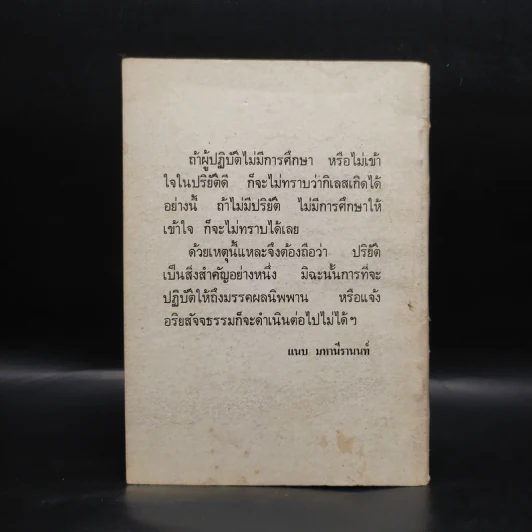 ถ้าผู้ปฏิบัติไม่มีการศึกษา หรือไม่เข้า
ใจในปริยัติดี ก็จะไม่ทราบว่ากิเลสเกิดได้
อย่างนี้ ถ้าไม่มีปริยัติ ไม่มีการศึกษาให้
เข้าใจ ก็จะไม่ทราบได้เลย
ด้วยเหตุนี้แหละจึงต้องถือว่า ปริยัติ
เป็นสิ่งสำคัญอย่างหนึ่ง มิฉะนั้นการที่จะ
ปฏิบัติให้ถึงมรรคผลนิพพาน หรือแจ้ง
อริยสัจจธรรมก็จะดำเนินต่อไปไม่ได้ ๆ
แนบ มหานีรานนท์